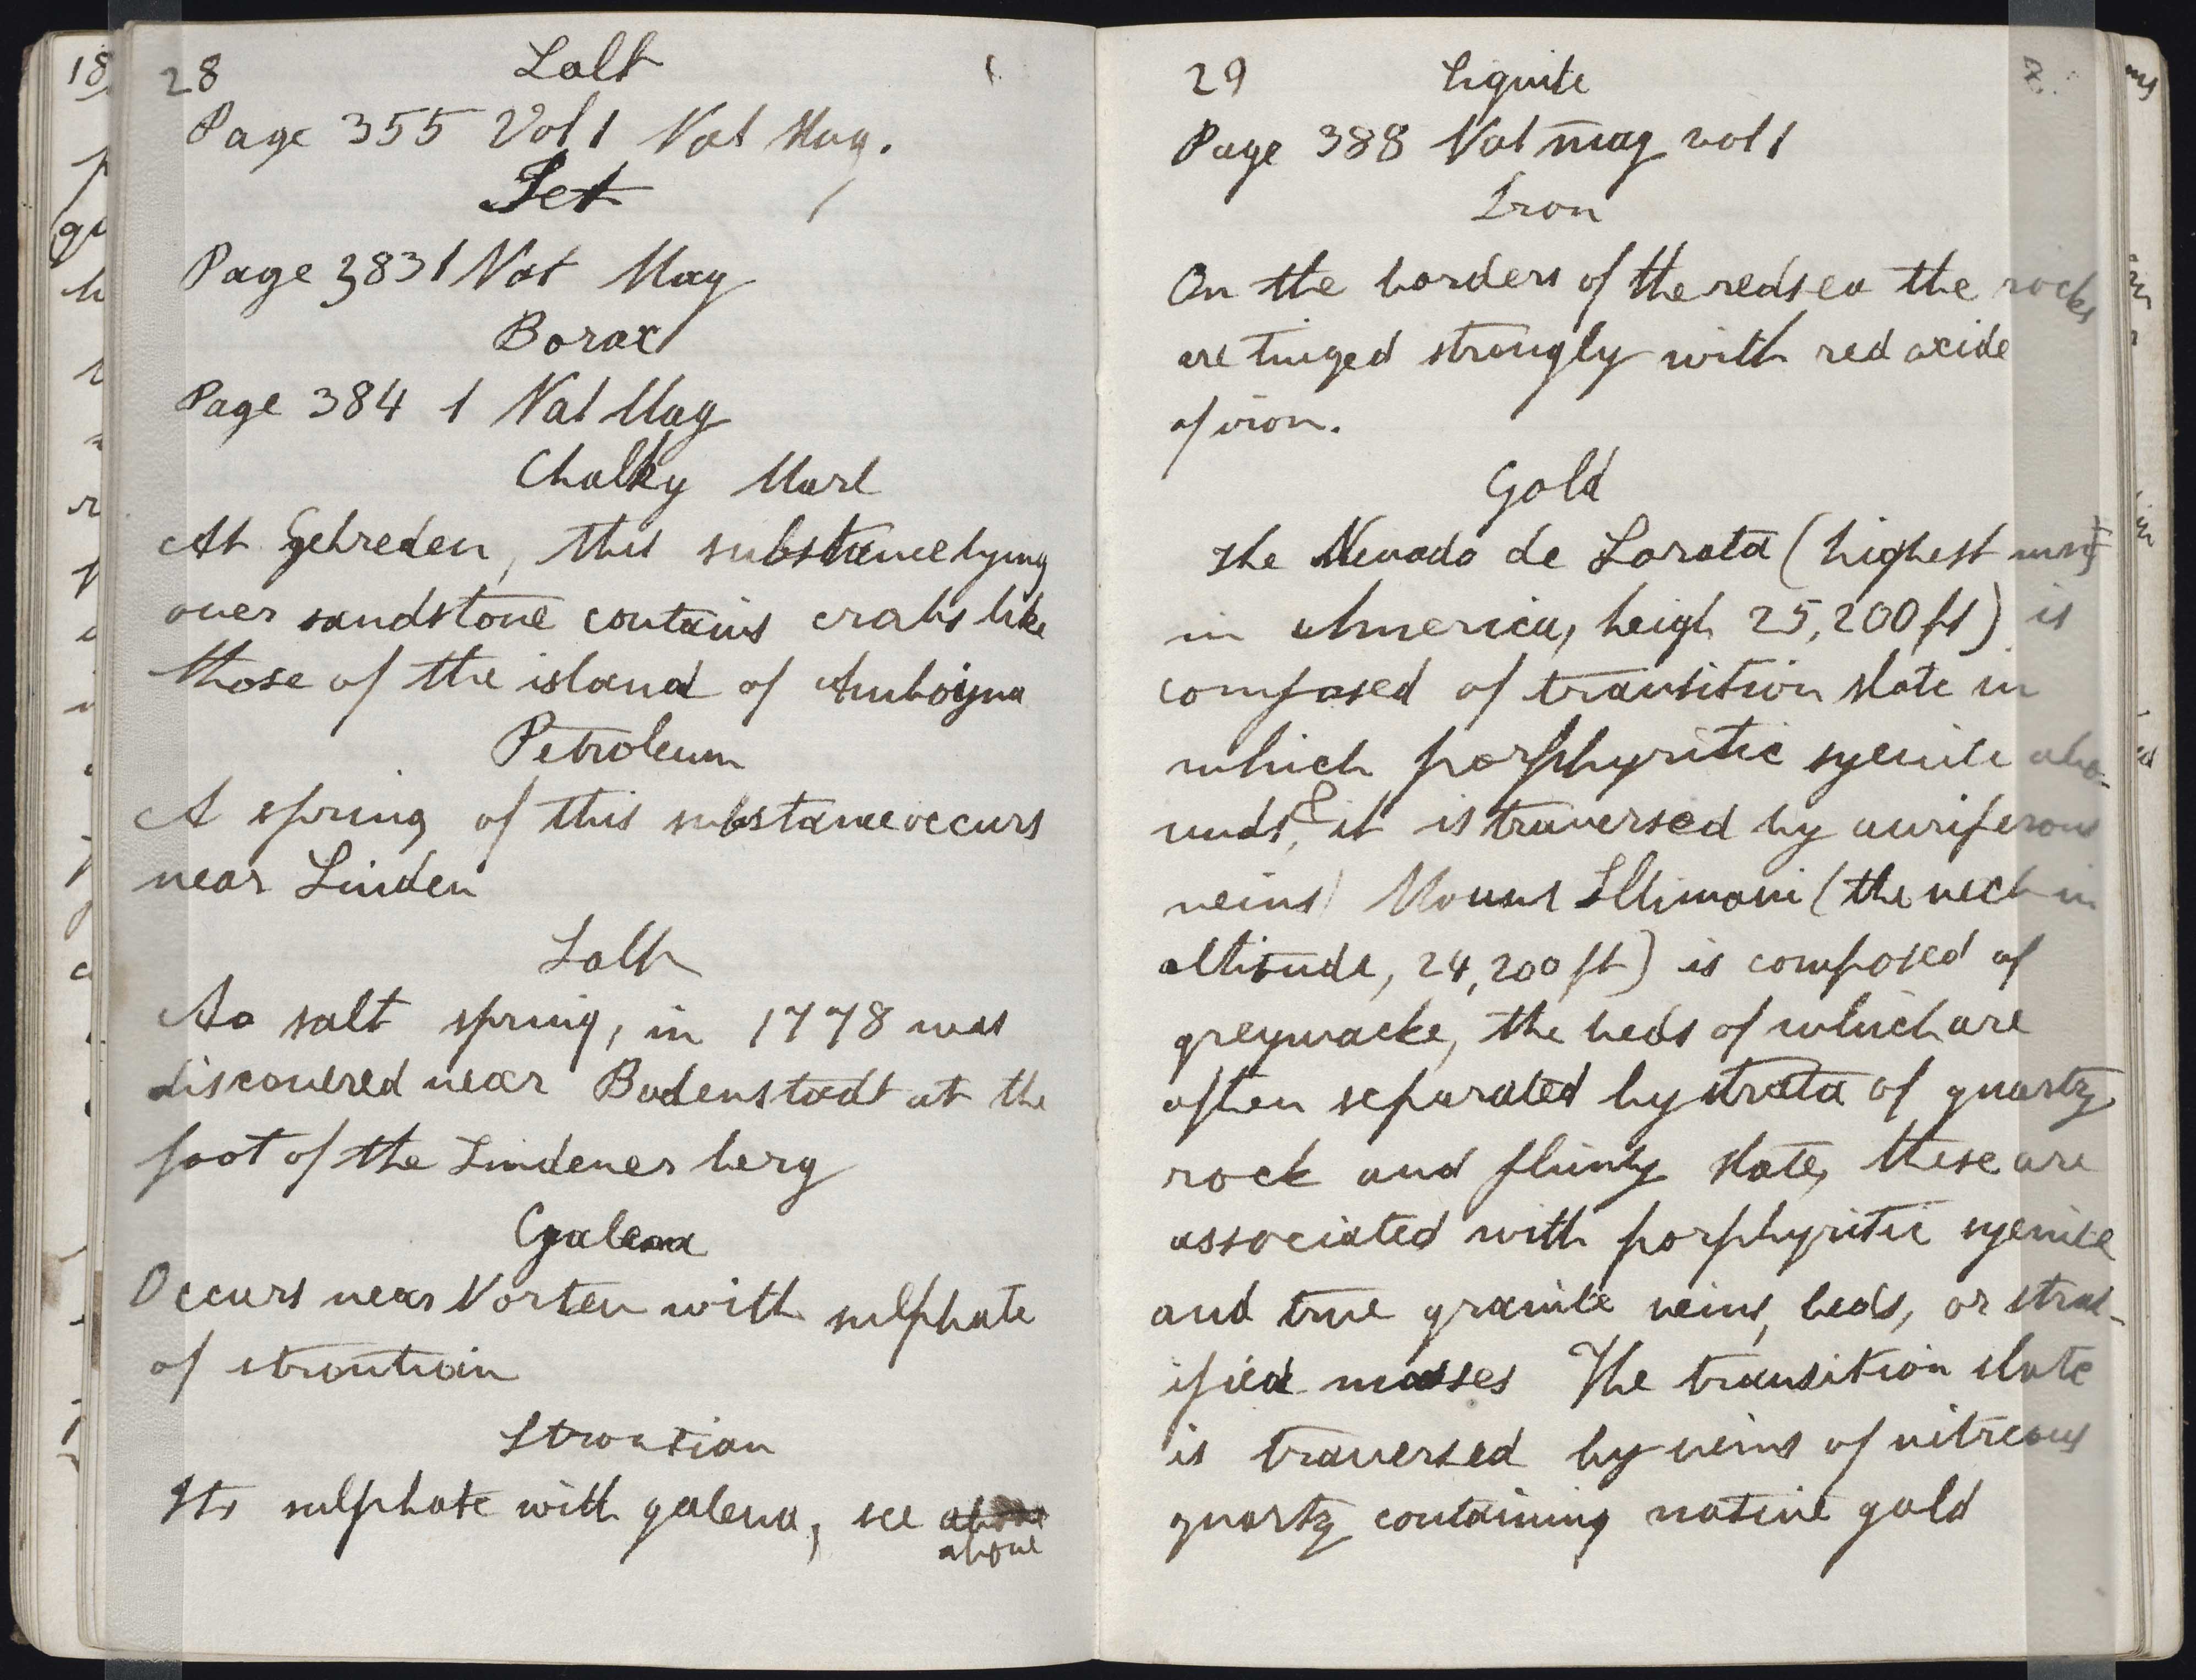 28
Salt
Page 355 Vol 1 Nat Mag.
Jet
Page 383 1 Nat Mag
Borax
Page 384 1 Nat Mag
Chalky Marl
At Gehreden, this substance lying
over sandstone contains crabs like
those of the island of Amboyna
Petroleum
A spring of this substance occurs
near Linden
Salt
Aa salt spring, in 1778 was
discovered near Badenstadt at the
foot of the Lindener berg
Galena
Occurs near Vorten with sulphate
of strontian
Strontian
Its sulphate with galena, see above
above
29
Lignite
Page 388 Nat mag vol 1
Iron
On the borders of the red sea the rocks
are tinged strongly with red oxide
of iron.
Gold
The Nevado de Sorata (highest mnt
in America, heigh 25,200 ft) is
composed of transition slate in
which porphyritic syenite abo-
unds, & it is traversed by auriferous
veins) Mount Illimani (the next in
altitude, 24,200 ft) is composed of
greywacke, the beds of which are
often separated by strata of quartz
rock and flinty slate, these are
associated with porphyritic syenite
and true granite veins, beds, or strat-
ified masses The transition slate
is traversed by veins of vitreous
quartz containing native gold